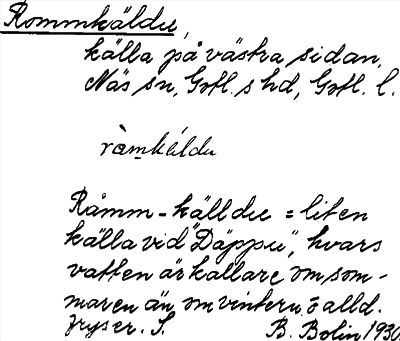 Rommkäldu,
källa på västra sidan,
Näs sn, Gotl. s hd, Gotl. l.
ràmkáldu
Råmm-källdu = liten
källa vid "Däppu", hvars
vatten är kallare om som-
maren än om vintern, o alld.
fryser. S. B. Bolin 1930.